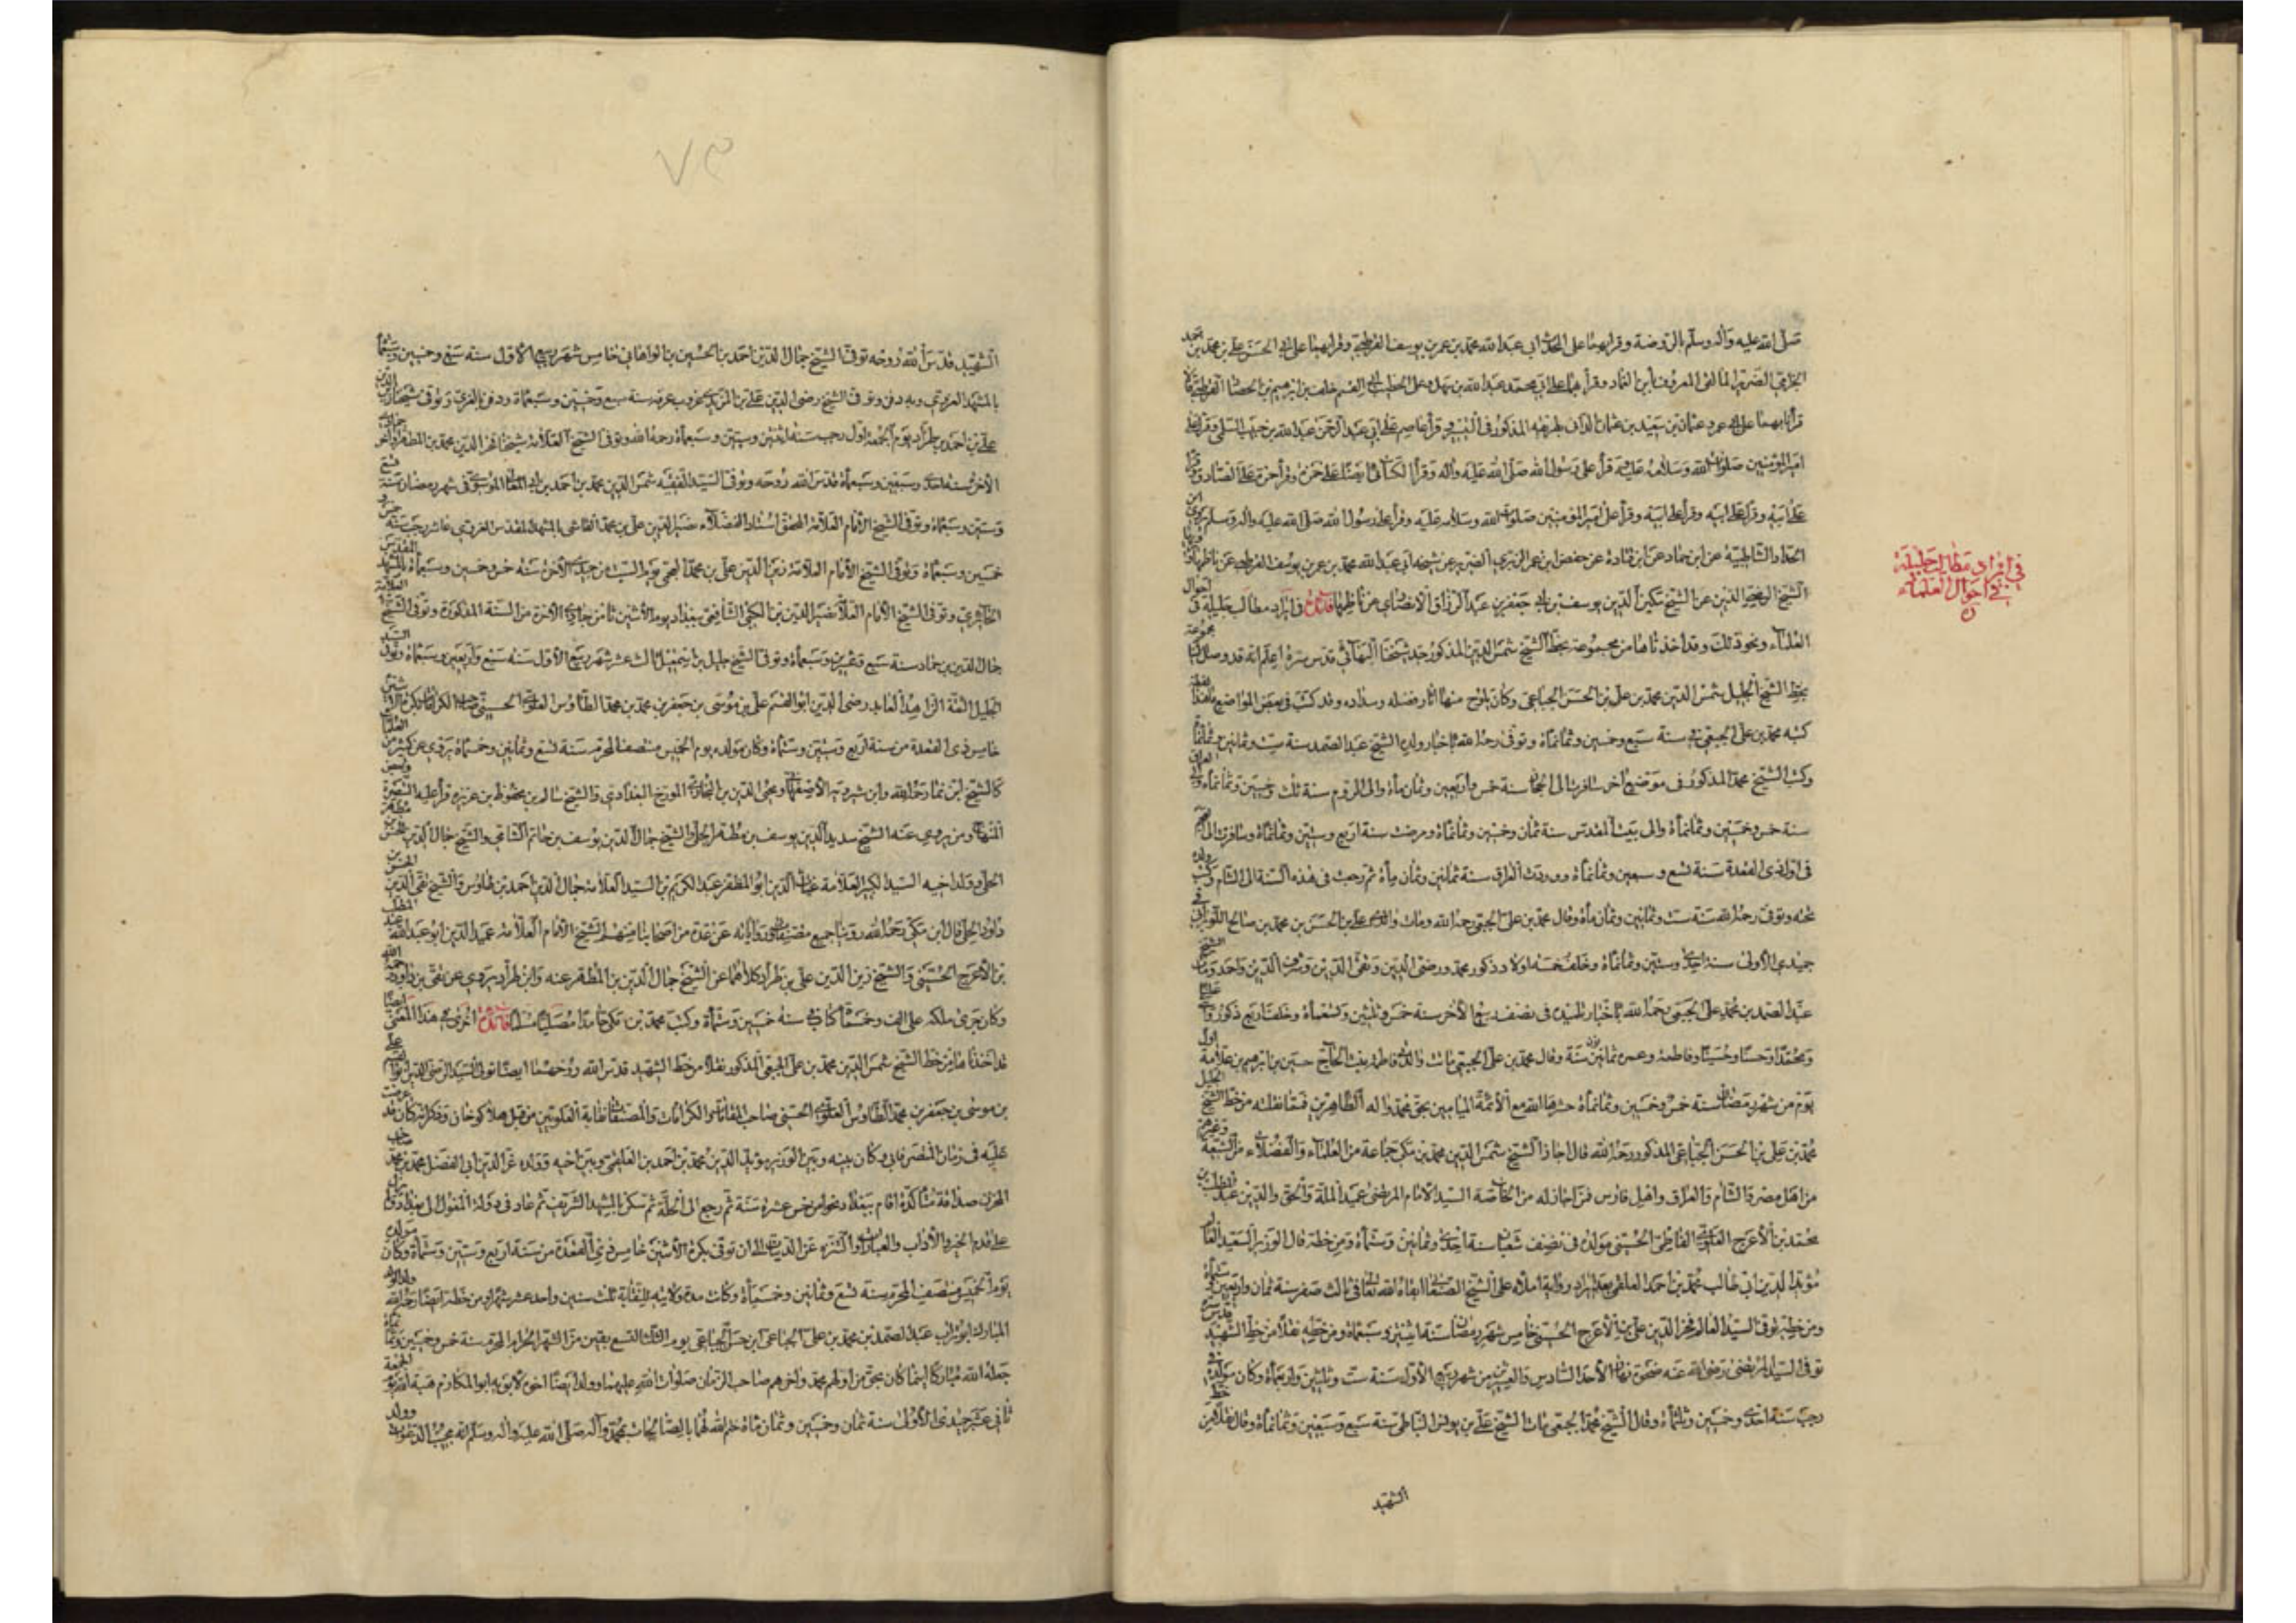 صلى الله عليه وآله وسلم بالروضة وقرأ بهما على المحدث ابي عبد الله محمد بن عمر بن يوسف القرطبي وقرأ بهما على ابي الحسن علي بن محمد بن احمد
الضرير المالقي المعروف بابن الغماد وقرأ بهما على ابي محمد عبد الله بن سهل وعلى الخطيب ابي القسم خلف بن ابرهيم بن الحصار القرطبي قالا
قرأنا بهما على ابي عمرو عثمان بن سعيد بن عثمان الداني بطريقه المذكور في التيسير قرأ عاصم على ابي عبد الرحمن عبد الله بن حبيب السلمي وقرأ على
امير المؤمنين صلوات الله وسلامه عليه وقرأ على رسول الله صلى الله عليه وآله وقرأ الكسائي ايضا على حمزة وقرأ حمزة على الصادق وقرأ
على ابيه وقرأ على ابيه وقرأ على امير المؤمنين صلوات الله وسلامه عليه وقرأ على رسول الله صلى الله عليه وآله وسلم
الحداد الشاطبية عن ابن حماد عن ابن قتادة عن حفص ابن عمر الضرير عن شيخه ابي عبد الله محمد بن عمر بن يوسف القرطبي عن ناظمها
الشيخ الدين عن الشيخ مكين الدين يوسف بن ابي جعفر بن عبد الرزاق الانصاري عن ناظمها فائدة في ايراد مطالب جليلة في احوال
العلماء ونحو ذلك وقد اخذناها من مجموعة بخط الشيخ شمس الدين المذكور جد شيخنا البهائي قدس سره اعلم انه قد وصل الينا مجموعة
بخط الشيخ الجليل شمس الدين محمد بن علي بن الحسن الجباعي وكان يلوح منها آثار فضله وسداده وقد كتب في بعض المواضع ما لفظه
كتبه محمد بن علي الجبعي في سنة سبع وخمسين وثمانمأة وتوفي رحمه الله باخبار ولده الشيخ عبد الصمد سنة ست وثمانين وثمانمأة
وكتب الشيخ محمد المذكور في موضع اخر سافرت الى الحجاز سنة خمس واربعين وثمان مأة والى الروم سنة ثلث وخمسين وثمانمأة والى العراق
سنة خمس وخمسين وثمانمأة والى بيت المقدس سنة ثمان وخمسين وثمانمأة ومرضت سنة اربع وستين وثمانمأة وسافرت الى
في اوائل ذي القعدة سنة تسع وسبعين وثمانمأة ووردت العراق سنة ثمانين وثمان مأة ثم رجعت في هذه السنة الى الشام وكتب ولده
تحته وتوفي رحمه الله سنة ست وثمانين وثمان مأة وقال محمد بن علي الجبعي رحمه الله ومات والدي علي بن الحسن بن محمد بن صالح اللويزاني في
جميدي الاولى سنة احدى وستين وثمانمأة وخلف خمسة اولاد ذكور محمد ورضي الدين وتقي الدين وشرف الدين واحمد ومات الشيخ
عبد الصمد بن محمد علي الجبعي رحمه الله باخبار تلميذه في نصف ربيع الاخر سنة خمس وثلثين وتسعمأة وخلف اربع ذكور عليا
ومحمدا وحسنا وحسينا وفاطمة وعمره ثمانون سنة وقال محمد بن علي الجبعي ماتت والدتي فاطمة بنت الحاج حسين بن ابرهيم بن علامة اول
يوم من شهر رمضان سنة خمس وخمسين وثمانمأة حشرها الله مع الائمة الميامين بحق محمد وآله الطاهرين فمما نقلته من خط الشيخ الجليل
محمد بن علي بن الحسن الجباعي المذكور رحمه الله قال اجاز الشيخ شمس الدين محمد بن مكي جماعة من العلماء والفضلاء من الشيعة وغيرهم
من اهل مصر والشام والعراق واهل فارس فمن اجاز له من الخاصة السيد الامام المرتضى عميد الملة والحق والدين عبد المطلب بن
محمد بن الاعرج العلوي الفاطمي الحسيني مولده في نصف شعبان سنة احدى وثمانين وستمأة ومن خطه قال الوزير السعيد العالم
مؤيد الدين ابي طالب محمد بن احمد العلقمي بعد ايراد رواية املاه على الشيخ الصنعاني ابقاه الله تعالى في ثالث صفر سنة ثمان واربعين وستمأة
ومن خطه توفي السيد العالم فخر الدين علي بن الاعرج الحسيني خامس شهر رمضان سنة اثنتين وسبعمأة ومن خطه نقلا من خط الشهيد قدس سره
توفي السيد المرتضى رضي الله عنه ضحوة نهار الاحد السادس والعشرين من شهر ربيع الاول سنة ست وثلثين واربعمأة وكان مولده في
رجب سنة احدى وخمسين وثلثمأة وقال الشيخ محمد الجبعي مات الشيخ علي بن يونس النباطي سنة سبع وسبعين وثمانمأة وقال نقلا من خط
الشهيد
في ايراد مطالب جليلة
في احوال العلماء
الشهيد قدس الله روحه توفي الشيخ جمال الدين احمد بن الحسين بن خامس شهر ربيع الاول سنة سبع وخمسين وسبعمأة
بالمشهد الغروي وبه دفن وتوفي الشيخ رضي الدين علي بن المزيدي غروب عرفة سنة سبع وخمسين وسبعمأة ودفن بالغري وتوفي شيخنا زين الدين
علي بن احمد بن طراد يوم الجمعة اول رجب سنة اثنتين وستين وسبعمأة رحمه الله وتوفي الشيخ العلامة شيخنا فخر الدين محمد بن المطهر جمادى
الاخرى سنة احدى وسبعين وسبعمأة قدس الله روحه وتوفي السيد الفقيه شمس الدين محمد بن احمد بن ابي المعالي الموسوي في شهر رمضان سنة تسع
وستين وسبعمأة وتوفي الشيخ الامام العلامة المحقق استاد الفضلاء نصير الدين علي بن محمد القاشي بالمشهد المقدس الغروي عاشر رجب سنة خمس و
خمسين وسبعمأة وتوفي الشيخ الامام العلامة زين الدين علي بن محمد يوم السبت من جمادى الاخرة سنة خمس وخمسين وسبعمأة بالمشهد المقدس
الحائري وتوفي الشيخ الامام العلامة نصير الدين بن الشافعي ببغداد يوم الاثنين ثامن جمادى الاخرة من السنة المذكورة وتوفي الشيخ العلامة
جمال الدين بن حماد سنة سبع وعشرين وسبعمأة وتوفي الشيخ خليل بن اسمعيل ثالث عشر شهر ربيع الاول سنة سبع واربعين وسبعمأة وتوفي السيد
الجليل الثقة الزاهد العابد رضي الدين ابو القسم علي بن موسى بن جعفر بن محمد بن محمد الطاوس العلوي الحسيني صاحب الكرامات بكرة الاثنين
خامس ذي القعدة من سنة اربع وستين وستمأة وكان مولده يوم الخميس منتصف المحرم سنة تسع وثمانين وخمسمأة يروي عن كثير من العلماء
كالشيخ ابن نما رحمه الله وابن شيرويه الاصفهاني ومحيي الدين بن النجار المورخ البغدادي والشيخ سالم بن محفوظ بن عزيزة قرأ عليه التبصرة وبعض
المنهاج وممن يروي عنه الشيخ سديد الدين يوسف بن مطهر الحلي والشيخ جمال الدين يوسف بن حاتم الشامي والشيخ جمال الدين الحسن بن مطهر
الحلي وولد اخيه السيد الكبير العلامة غياث الدين ابو المظفر عبد الكريم بن السيد العلامة جمال الدين احمد بن طاوس والشيخ تقي الدين الحسن بن
داود الحلي قال ابن مكي رحمه الله روينا جميع مصنفاته ورواياته عن عدة من اصحابنا منهم الشيخ الامام العلامة عميد الدين ابو عبد الله عبد المطلب
بن الاعرج الحسيني والشيخ زين الدين علي بن طراد كلاهما عن الشيخ جمال الدين بن المطهر عنه وابن طراد يروي عن تقي بن داود عنه رحمه الله
وكان جرى ملكه على الف وخمسمأة كتاب في سنة خمسين وستمأة وكتب محمد بن مكي حامدا مصليا مسلما فائدة اخرى في هذا المعنى ايضا
قد اخذناها من خط الشيخ شمس الدين محمد بن علي الجبعي المذكور نقلا من خط الشهيد قدس الله روحهما ايضا تولى السيد الرضي الدين ابو القسم علي
بن موسى بن جعفر بن محمد الطاوس العلوي الحسيني صاحب المقامات والكرامات والمصنفات نقابة العلويين من قبل هلاكو خان وذكر انه كان قد عرضت
عليه في زمان المستنصر فابى وكان بينه وبين الوزير مؤيد الدين محمد بن احمد بن العلقمي وبين اخيه وولده عز الدين ابي الفضل محمد بن محمد صاحب
المخزن صداقة متأكدة اقام ببغداد نحوا من خمس عشرة سنة ثم رجع الى الحلة ثم سكن بالمشهد الشريف ثم عاد في دولة المغول الى بغداد ولم يزل
على قدم الخير والآداب والعبادات والتنزه عن الدنيات الى ان توفي بكرة الاثنين خامس ذي القعدة من سنة اربع وستين وستمأة وكان مولده
يوم الخميس منتصف المحرم سنة تسع وثمانين وخمسمأة وكانت مدة ولايته للنقابة ثلث سنين واحد عشر شهرا ومن خطه ايضا رحمه الله ولد الولد
المبارك ابو تراب عبد الصمد بن محمد بن علي الجباعي ابن حسن الجباعي يوم الثلثا لتسع بقين من الشهر الحرام المحرم سنة خمس وخمسين وثمانمأة
جعله الله مباركا اينما كان بحق من اولهم محمد وآخرهم صاحب الزمان صلوات الله عليهما وولد ايضا اخوه لابويه ابو المكارم هبة الله يوم الجمعة
ثاني عشر جميدي الاولى سنة ثمان وخمسين وثمان مأة ختم الله لهما بالصالحات بمحمد وآله صلى الله عليه وآله وسلم انه مجيب الدعوات وولد